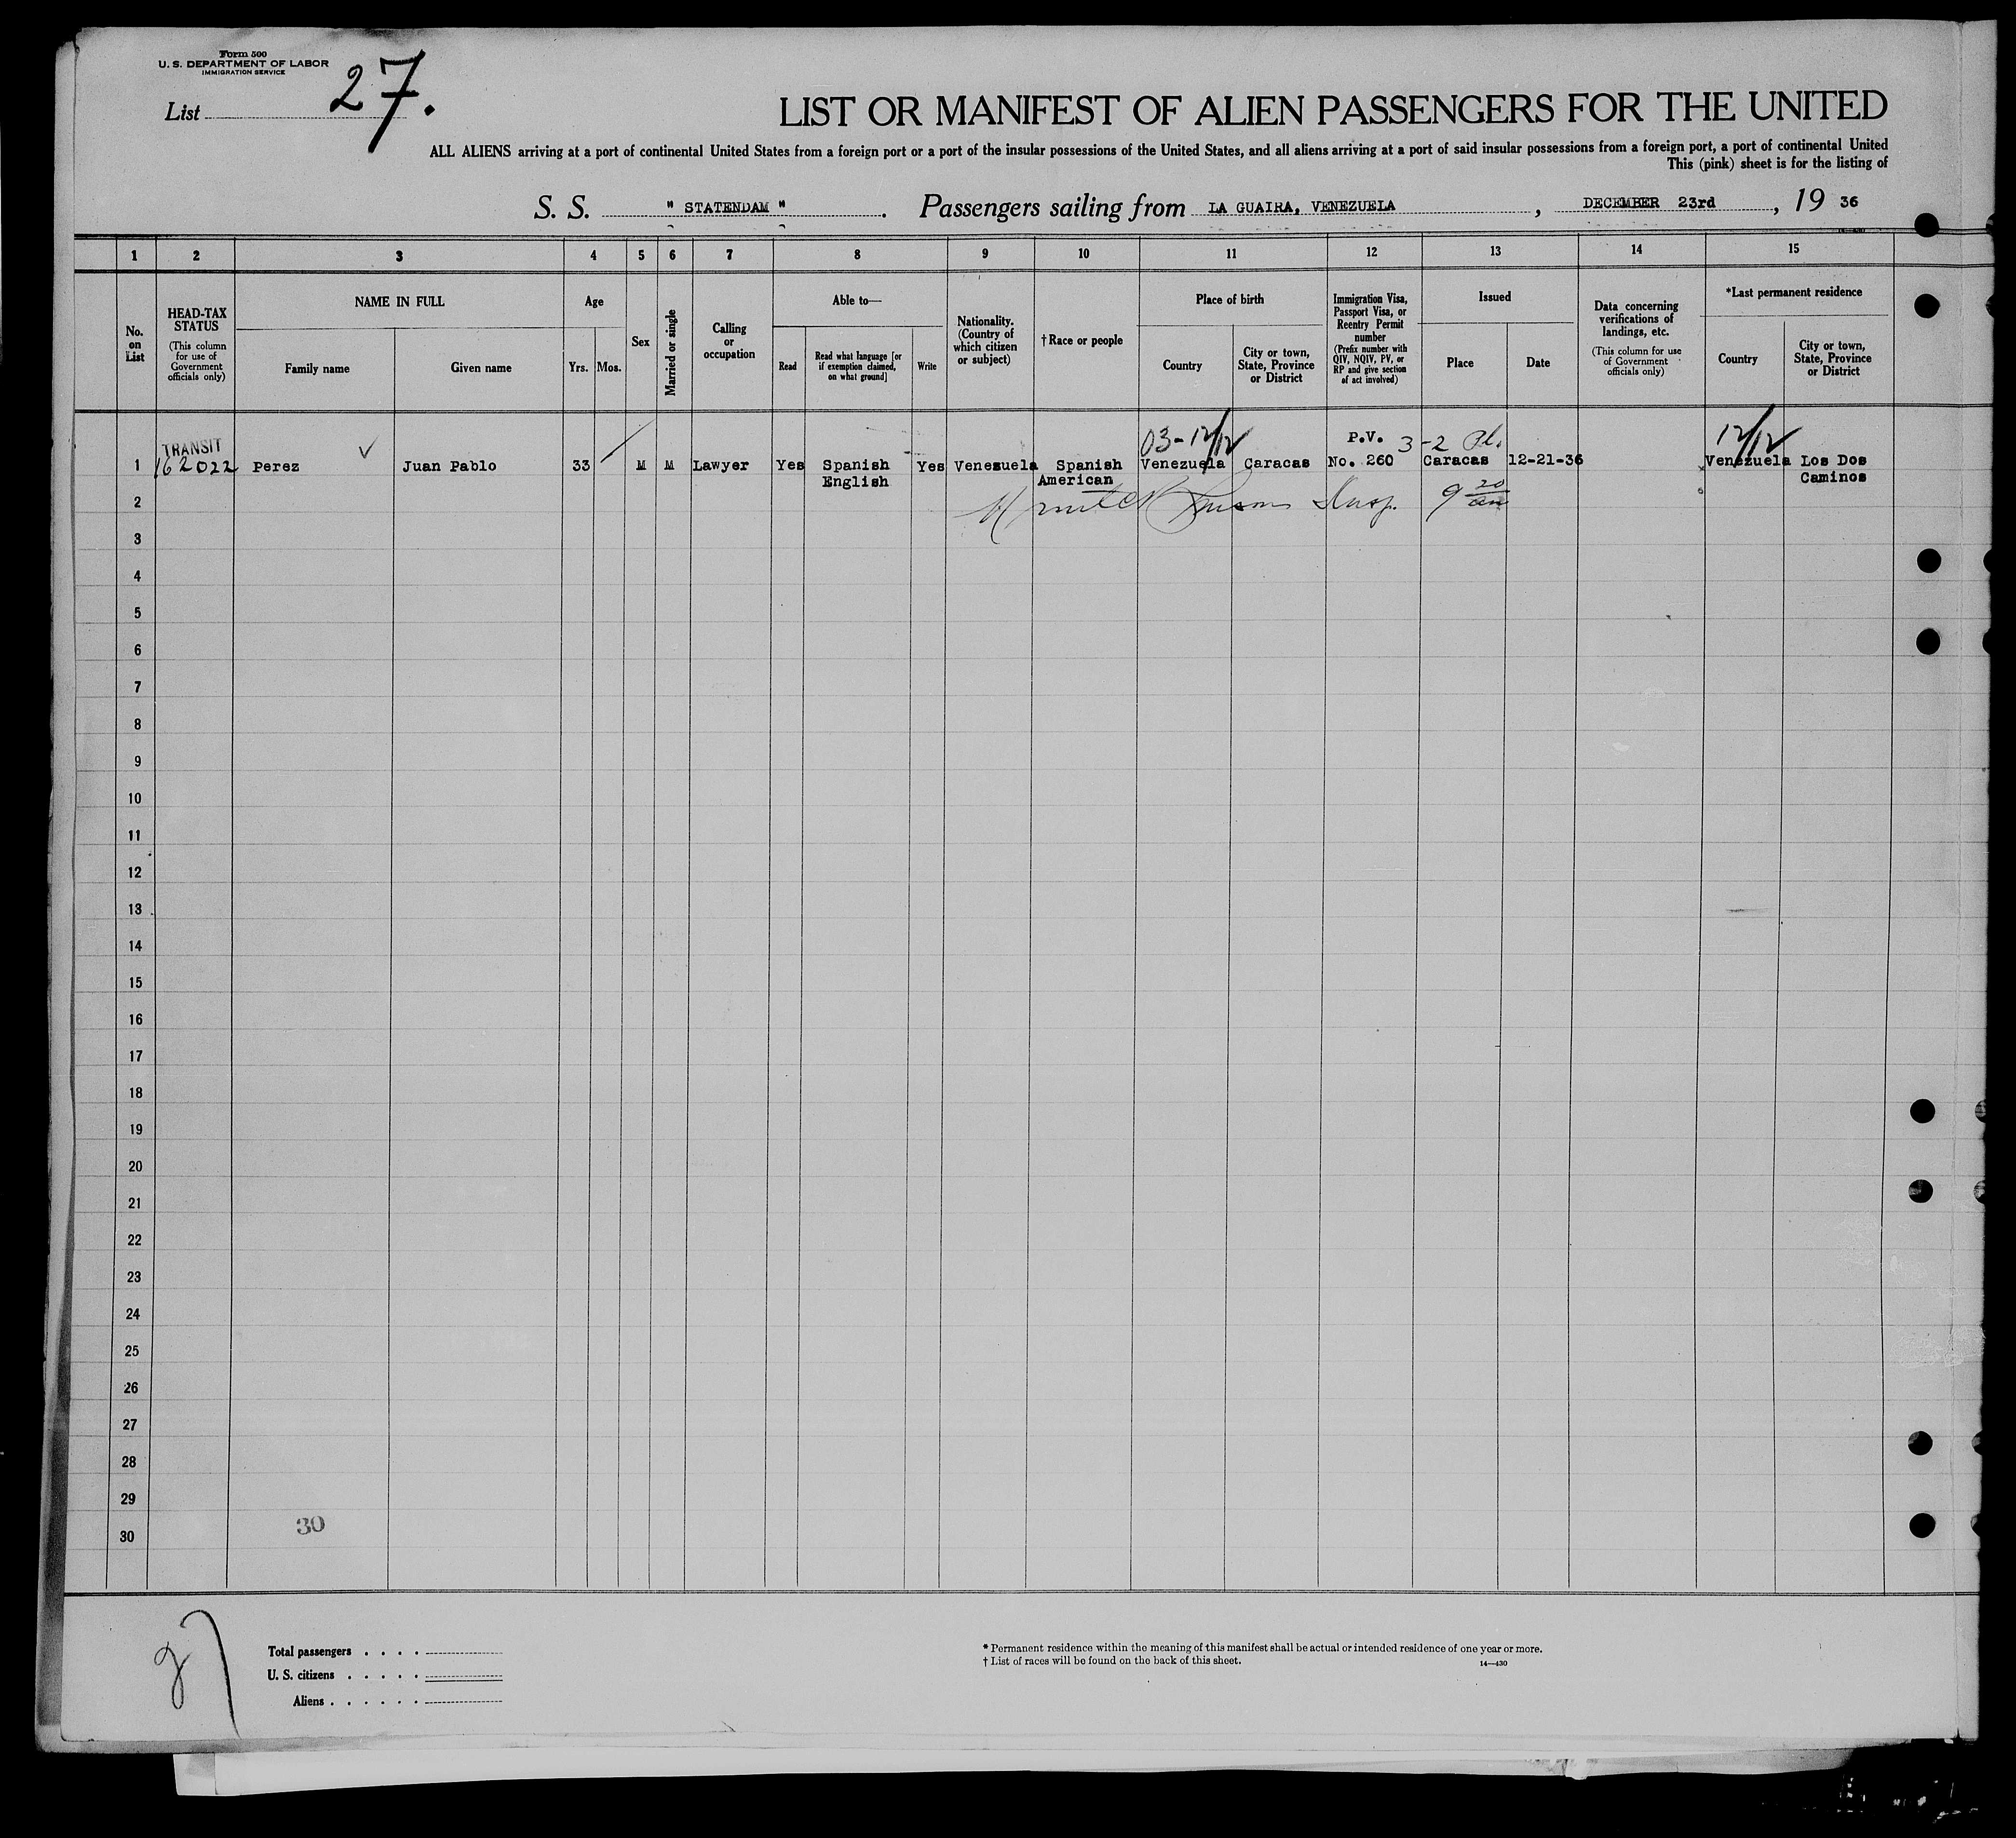 Form 500
U. S. DEPARTMENT OF LABOR
IMMIGRATION SERVICE
List 27.
LIST OR MANIFEST OF ALIEN PASSENGERS FOR THE UNITED
ALL ALIENS arriving at a port of continental United States from a foreign port or a port of the insular possessions of the United States, and all aliens arriving at a port of said insular possessions from a foreign port, a port of continental United
This (pink) sheet is for the listing of
S. S. " STATENDAM " . Passengers sailing from LA GUAIRA, VENEZUELA , DECEMBER 23rd , 19 36
1 2 3 4 5 6 7 8 9 10 11 12 13 14 15
No. on List
HEAD-TAX STATUS
(This column for use of Government officials only)
NAME IN FULL
Family name
Given name
Age
Yrs. Mos.
Sex
Married or single
Calling or occupation
Able to—
Read
Read what language [or if exemption claimed, on what ground]
Write
Nationality. (Country of which citizen or subject)
†Race or people
Place of birth
Country
City or town, State, Province or District
Immigration Visa, Passport Visa, or Reentry Permit number
(Prefix number with QIV, NQIV, PV, or RP and give section of act involved)
Issued
Place
Date
Data concerning verifications of landings, etc.
(This column for use of Government officials only)
*Last permanent residence
Country
City or town, State, Province or District
TRANSIT 03-12/12 P.V. 3-2 12/12
1 162022 Perez Juan Pablo 33 M M Lawyer Yes Spanish Yes Venezuela Spanish Venezuela Caracas No. 260 Caracas 12-21-36 Venezuela Los Dos
English American Caminos
2 Insp. 9 20
3
4
5
6
7
8
9
10
11
12
13
14
15
16
17
18
19
20
21
22
23
24
25
26
27
28
29
30
30
Total passengers . . . .
U. S. citizens . . . . .
Aliens . . . . . .
* Permanent residence within the meaning of this manifest shall be actual or intended residence of one year or more.
† List of races will be found on the back of this sheet.
14—430